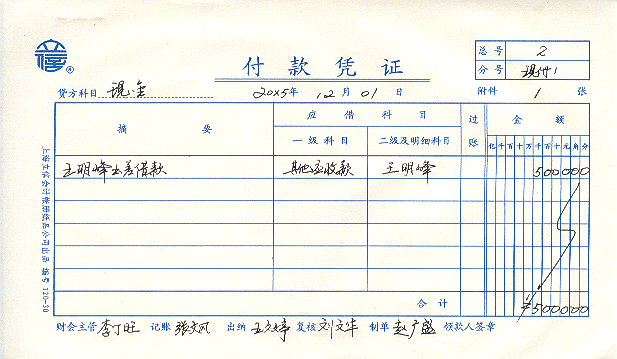 付款凭证
总号 2
分号 现付1
附件 1 张
贷方科目 现金 20X5年 12月 01日
摘要 应借科目 过账 金额
一级科目 二级及明细科目 亿千百十万千百十元角分
王明峰出差借款 其他应收款 王明峰 500000
合计 ¥500000
财会主管 李丁旺 记账 张文凤 出纳 王文婷 复核 刘文华 制单 赵广盛 领款人签章
上海立信会计账册纸品公司出品 编号 120-30